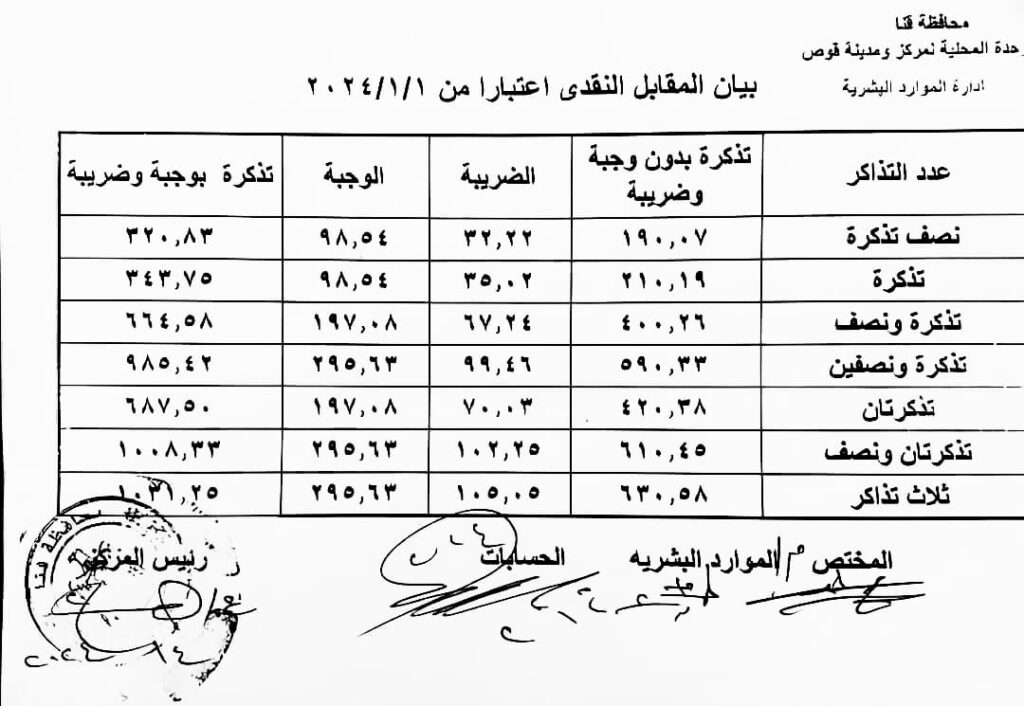 محافظة قنا
وحدة المحلية لمركز ومدينة قوص
ادارة الموارد البشرية
بيان المقابل النقدى اعتبارا من ٢٠٢٤/١/١
عدد التذاكر | تذكرة بدون وجبة وضريبة | الضريبة | الوجبة | تذكرة بوجبة وضريبة
نصف تذكرة | ١٩٠,٠٧ | ٣٢,٢٢ | ٩٨,٥٤ | ٣٢٠,٨٣
تذكرة | ٢١٠,١٩ | ٣٥,٠٢ | ٩٨,٥٤ | ٣٤٣,٧٥
تذكرة ونصف | ٤٠٠,٢٦ | ٦٧,٢٤ | ١٩٧,٠٨ | ٦٦٤,٥٨
تذكرة ونصفين | ٥٩٠,٣٣ | ٩٩,٤٦ | ٢٩٥,٦٣ | ٩٨٥,٤٢
تذكرتان | ٤٢٠,٣٨ | ٧٠,٠٣ | ١٩٧,٠٨ | ٦٨٧,٥٠
تذكرتان ونصف | ٦١٠,٤٥ | ١٠٢,٢٥ | ٢٩٥,٦٣ | ١٠٠٨,٣٣
ثلاث تذاكر | ٦٣٠,٥٨ | ١٠٥,٠٥ | ٢٩٥,٦٣ | ١٠٣١,٢٥
المختص م/الموارد البشريه الحسابات رئيس المركز
محافظة قنا